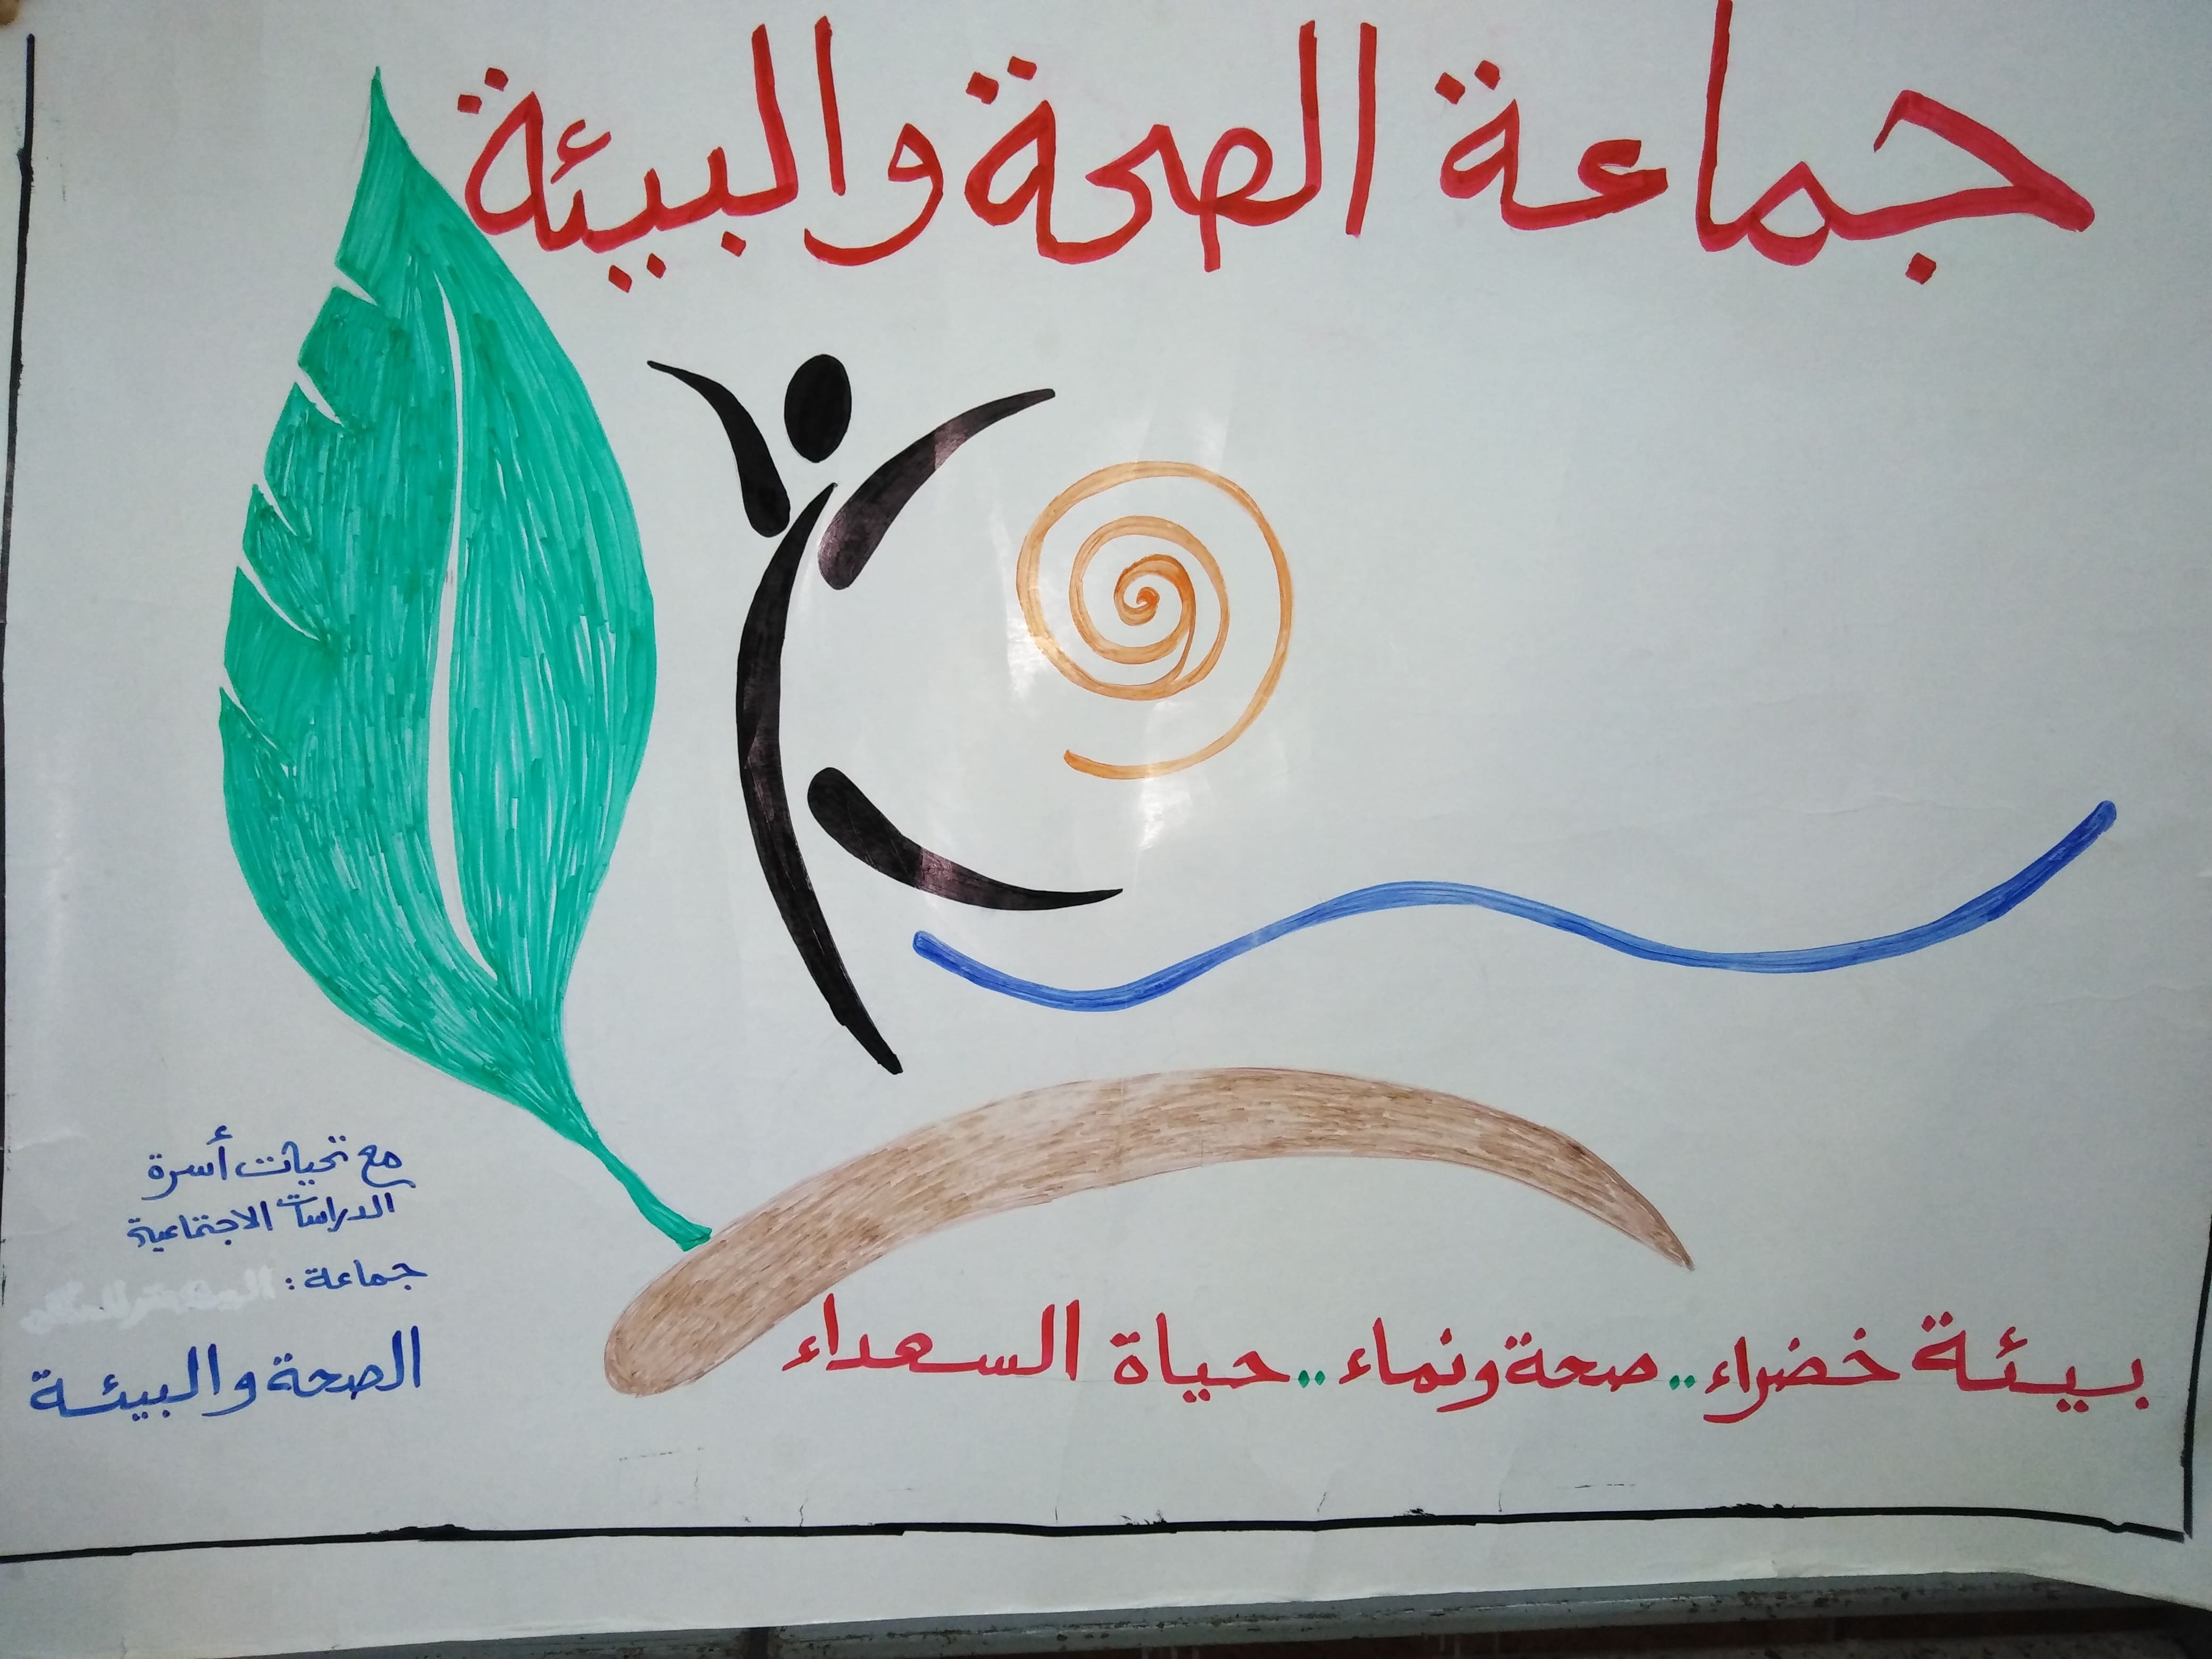 جماعة الصحة والبيئة
مع تحيات أسرة
الدراسات الاجتماعية
جماعة :
الصحة والبيئة
بيئة خضراء .. صحة ونماء .. حياة السعداء